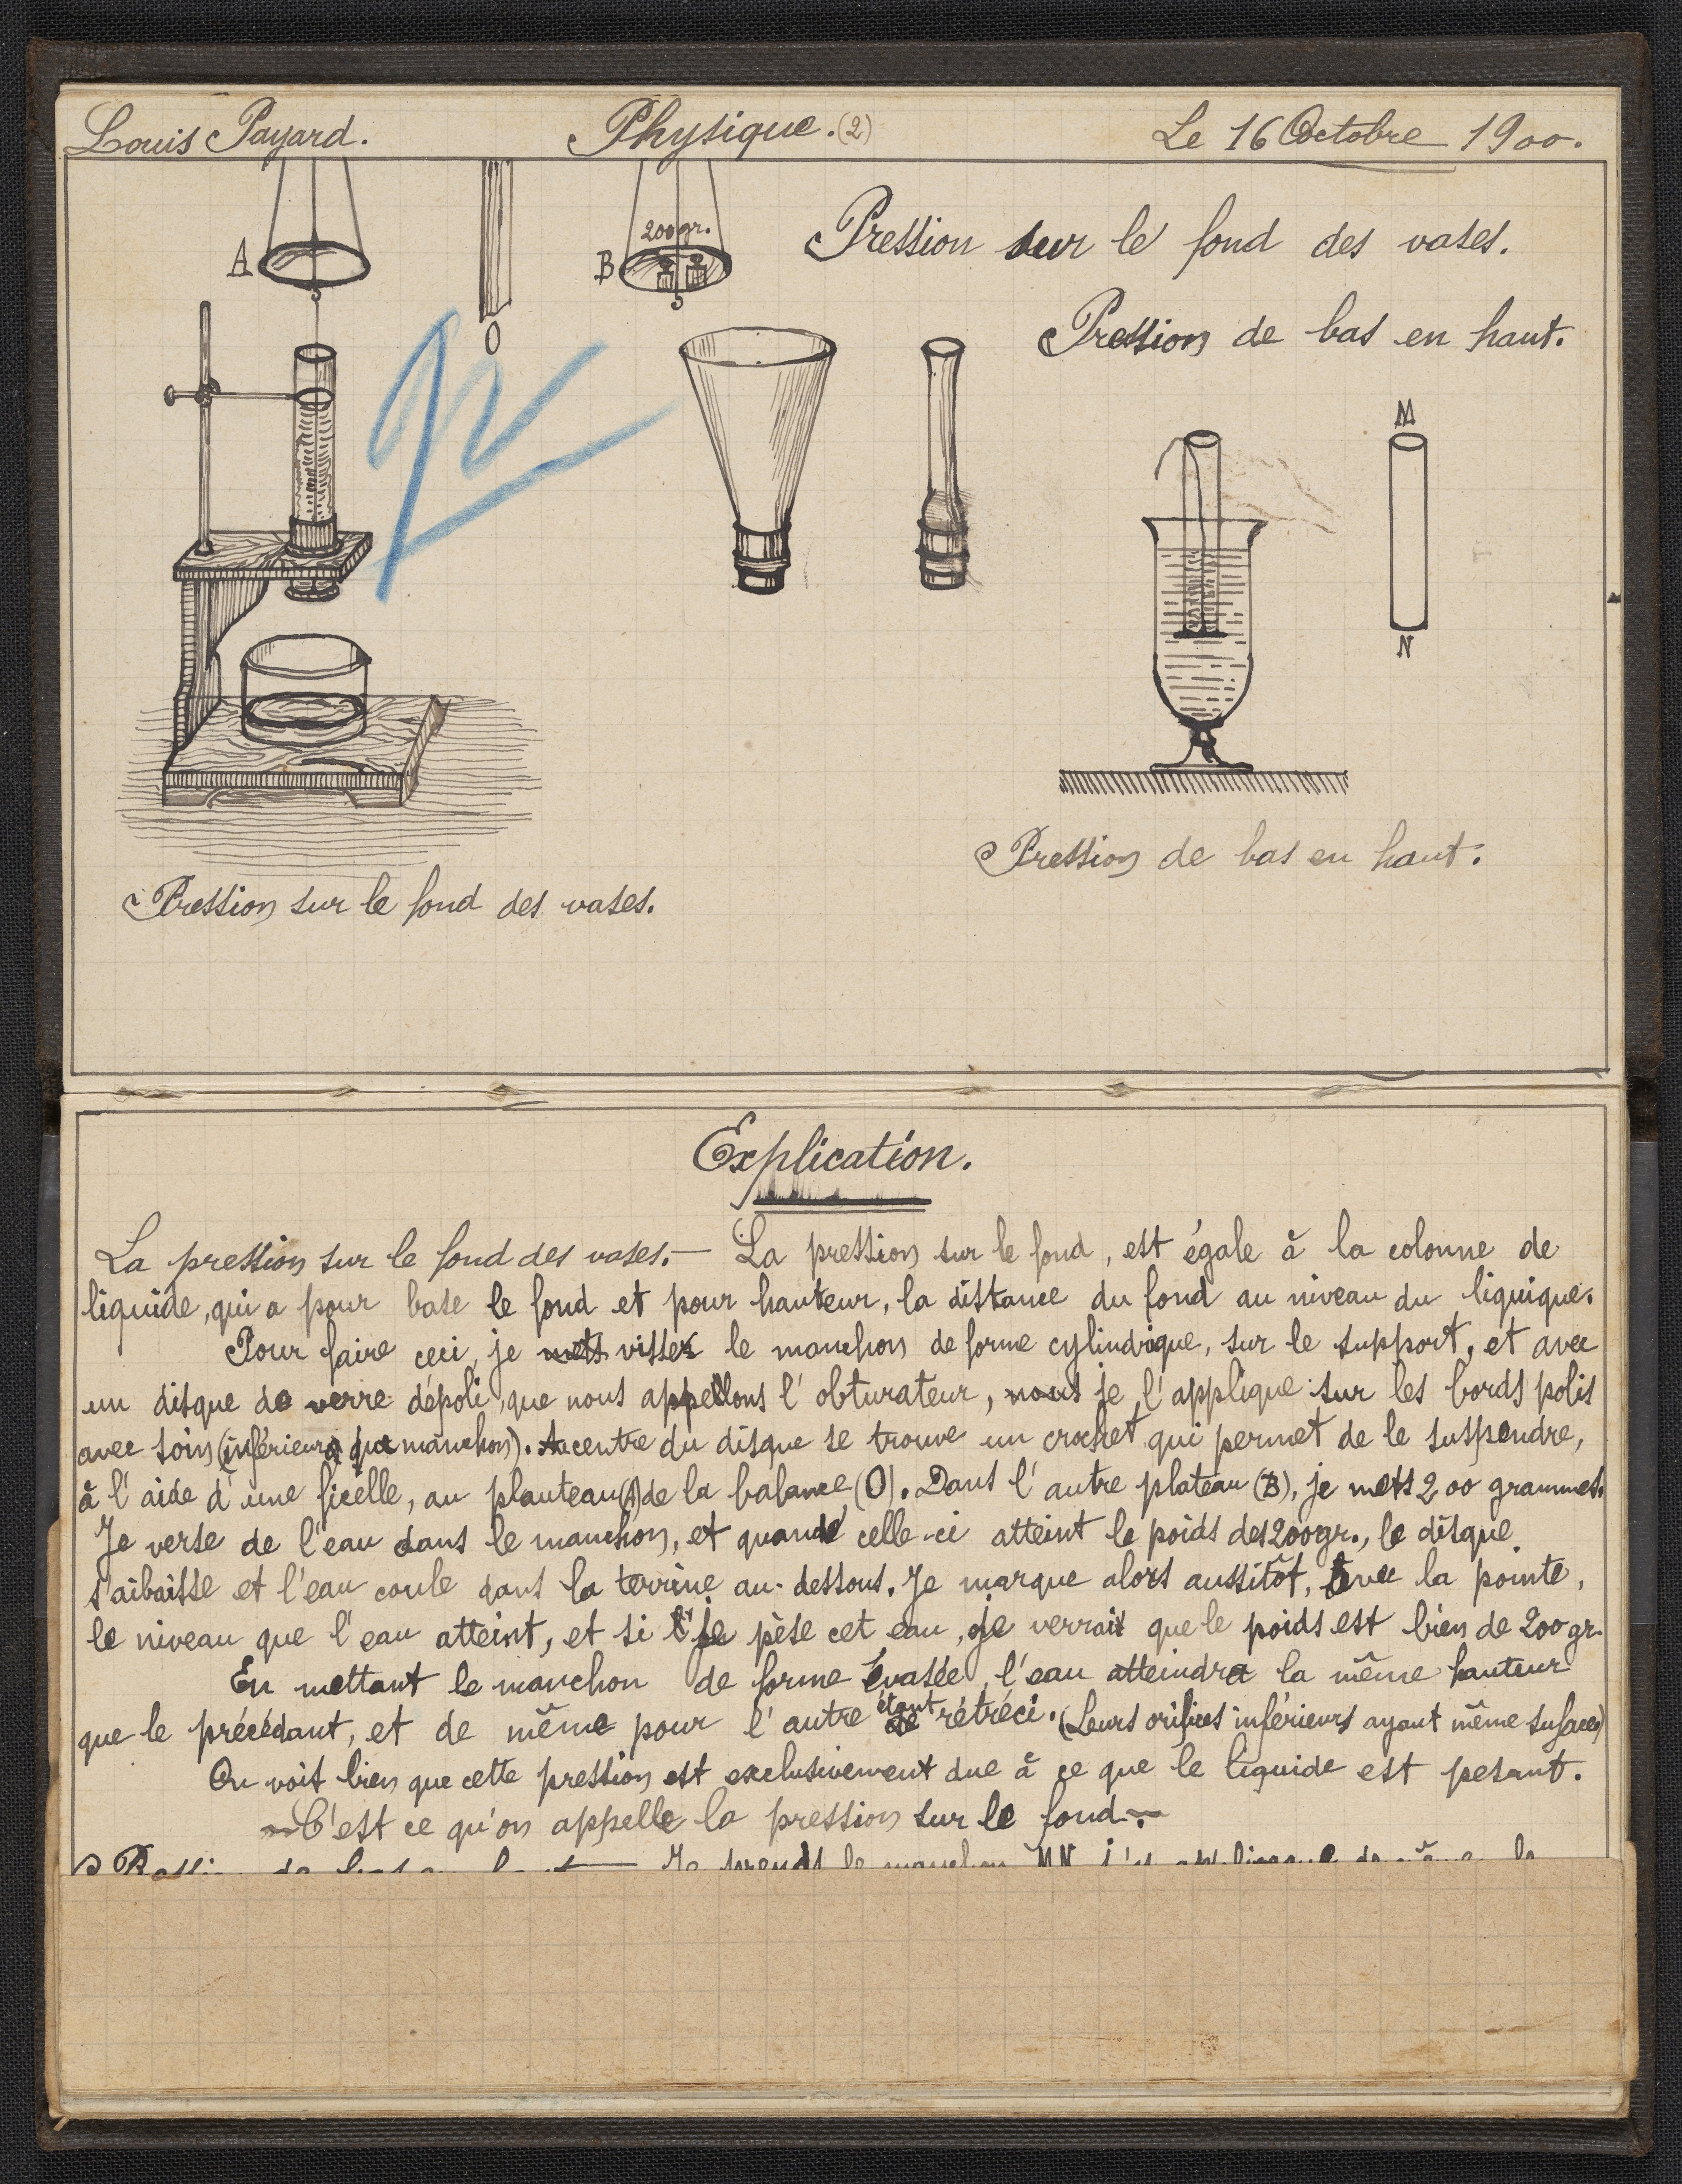 Louis Payard. Physique. (2) Le 16 Octobre 1900.
A
O
B
200gr.
Pression sur le fond des vases.
Pression de bas en haut.
M
N
Pression de bas en haut.
Pression sur le fond des vases.
Explication.
La pression sur le fond des vases. — La pression sur le fond, est égale à la colonne de
liquide, qui a pour base le fond et pour hauteur, la distance du fond au niveau du liquique.
Pour faire ceci, je mets visser le manchon de forme cylindrique, sur le support, et avec
un disque de verre dépoli, que nous appellons l'obturateur, nous je l'applique sur les bords polis
avec soin (inférieurs du manchon). Au centre du disque se trouve un crochet qui permet de le suspendre,
à l'aide d'une ficelle, au plauteau (A) de la balance (O). Dans l'autre plateau (B), je mets 200 grammes.
Je verse de l'eau dans le manchon, et quand celle-ci atteint le poids des 200gr., le disque
s'aibaisse et l'eau coule dans la terrine au-dessous. Je marque alors aussitôt, avec la pointe,
le niveau que l'eau atteint, et si je pèse cet eau, je verrais que le poids est bien de 200gr.
En mettant le manchon de forme évasée, l'eau atteindra la même hauteur
que le précédant, et de même pour l'autre étant rétréci. (Leurs orifices inférieurs ayant même sufaces)
On voit bien que cette pression est exclusivement due à ce que le liquide est pesant.
C'est ce qu'on appelle la pression sur le fond.
Je prends le manchon MN